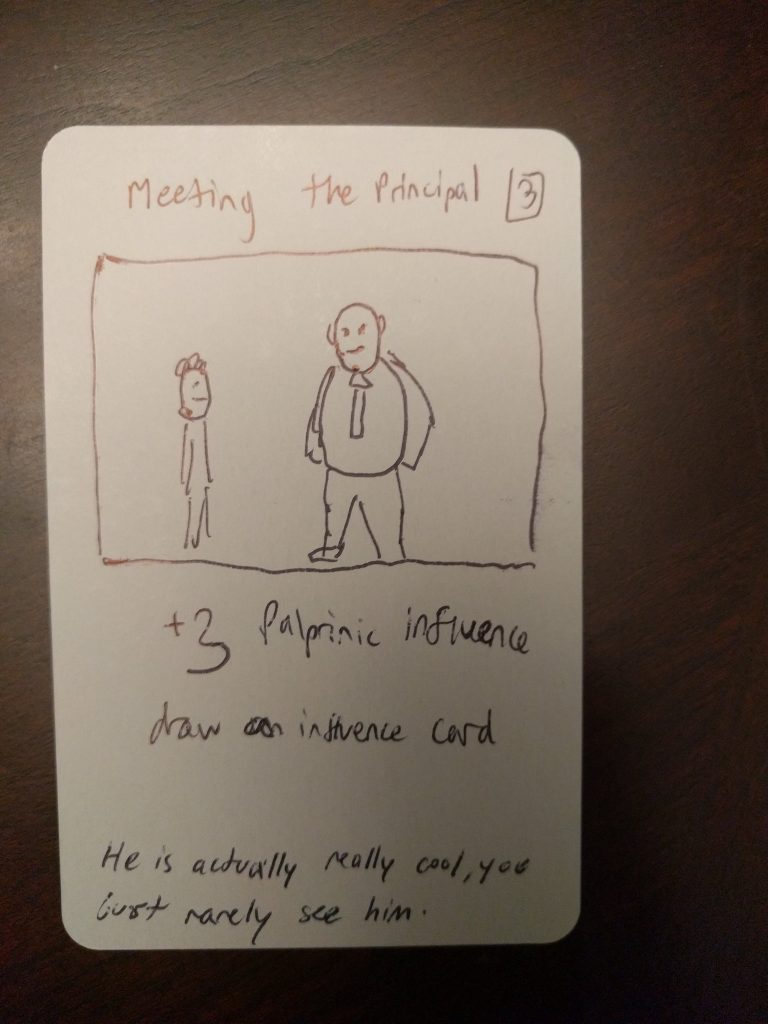 Meeting the Principal 3
+3 Palprinic influence
draw an influence card
He is actually really cool, you
just rarely see him.